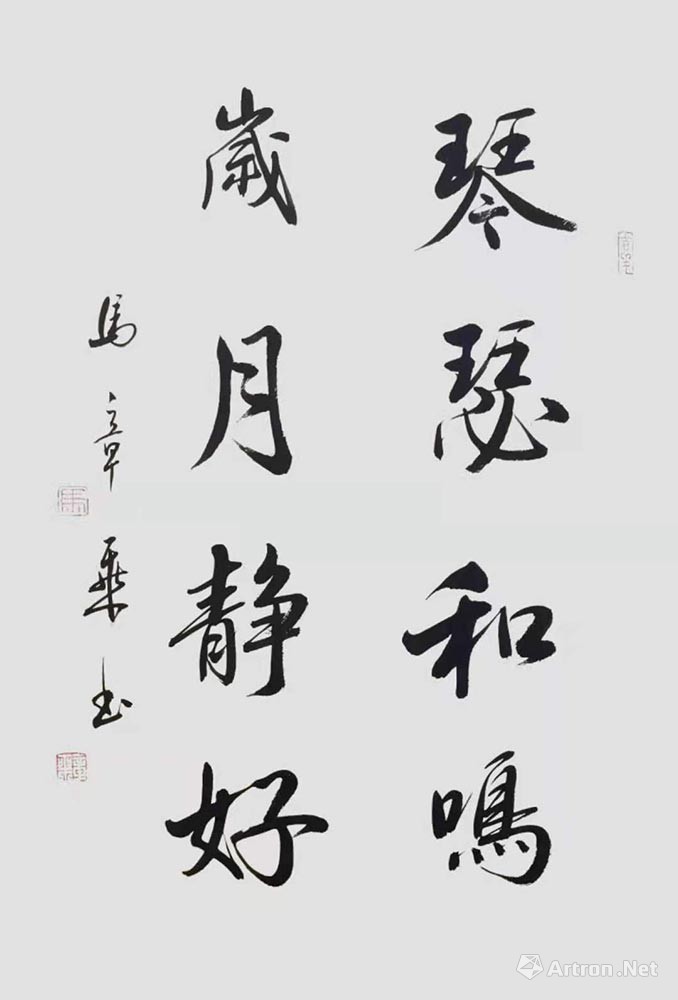 琴瑟和鳴
歲月靜好
馬章乘书
Artron.Net